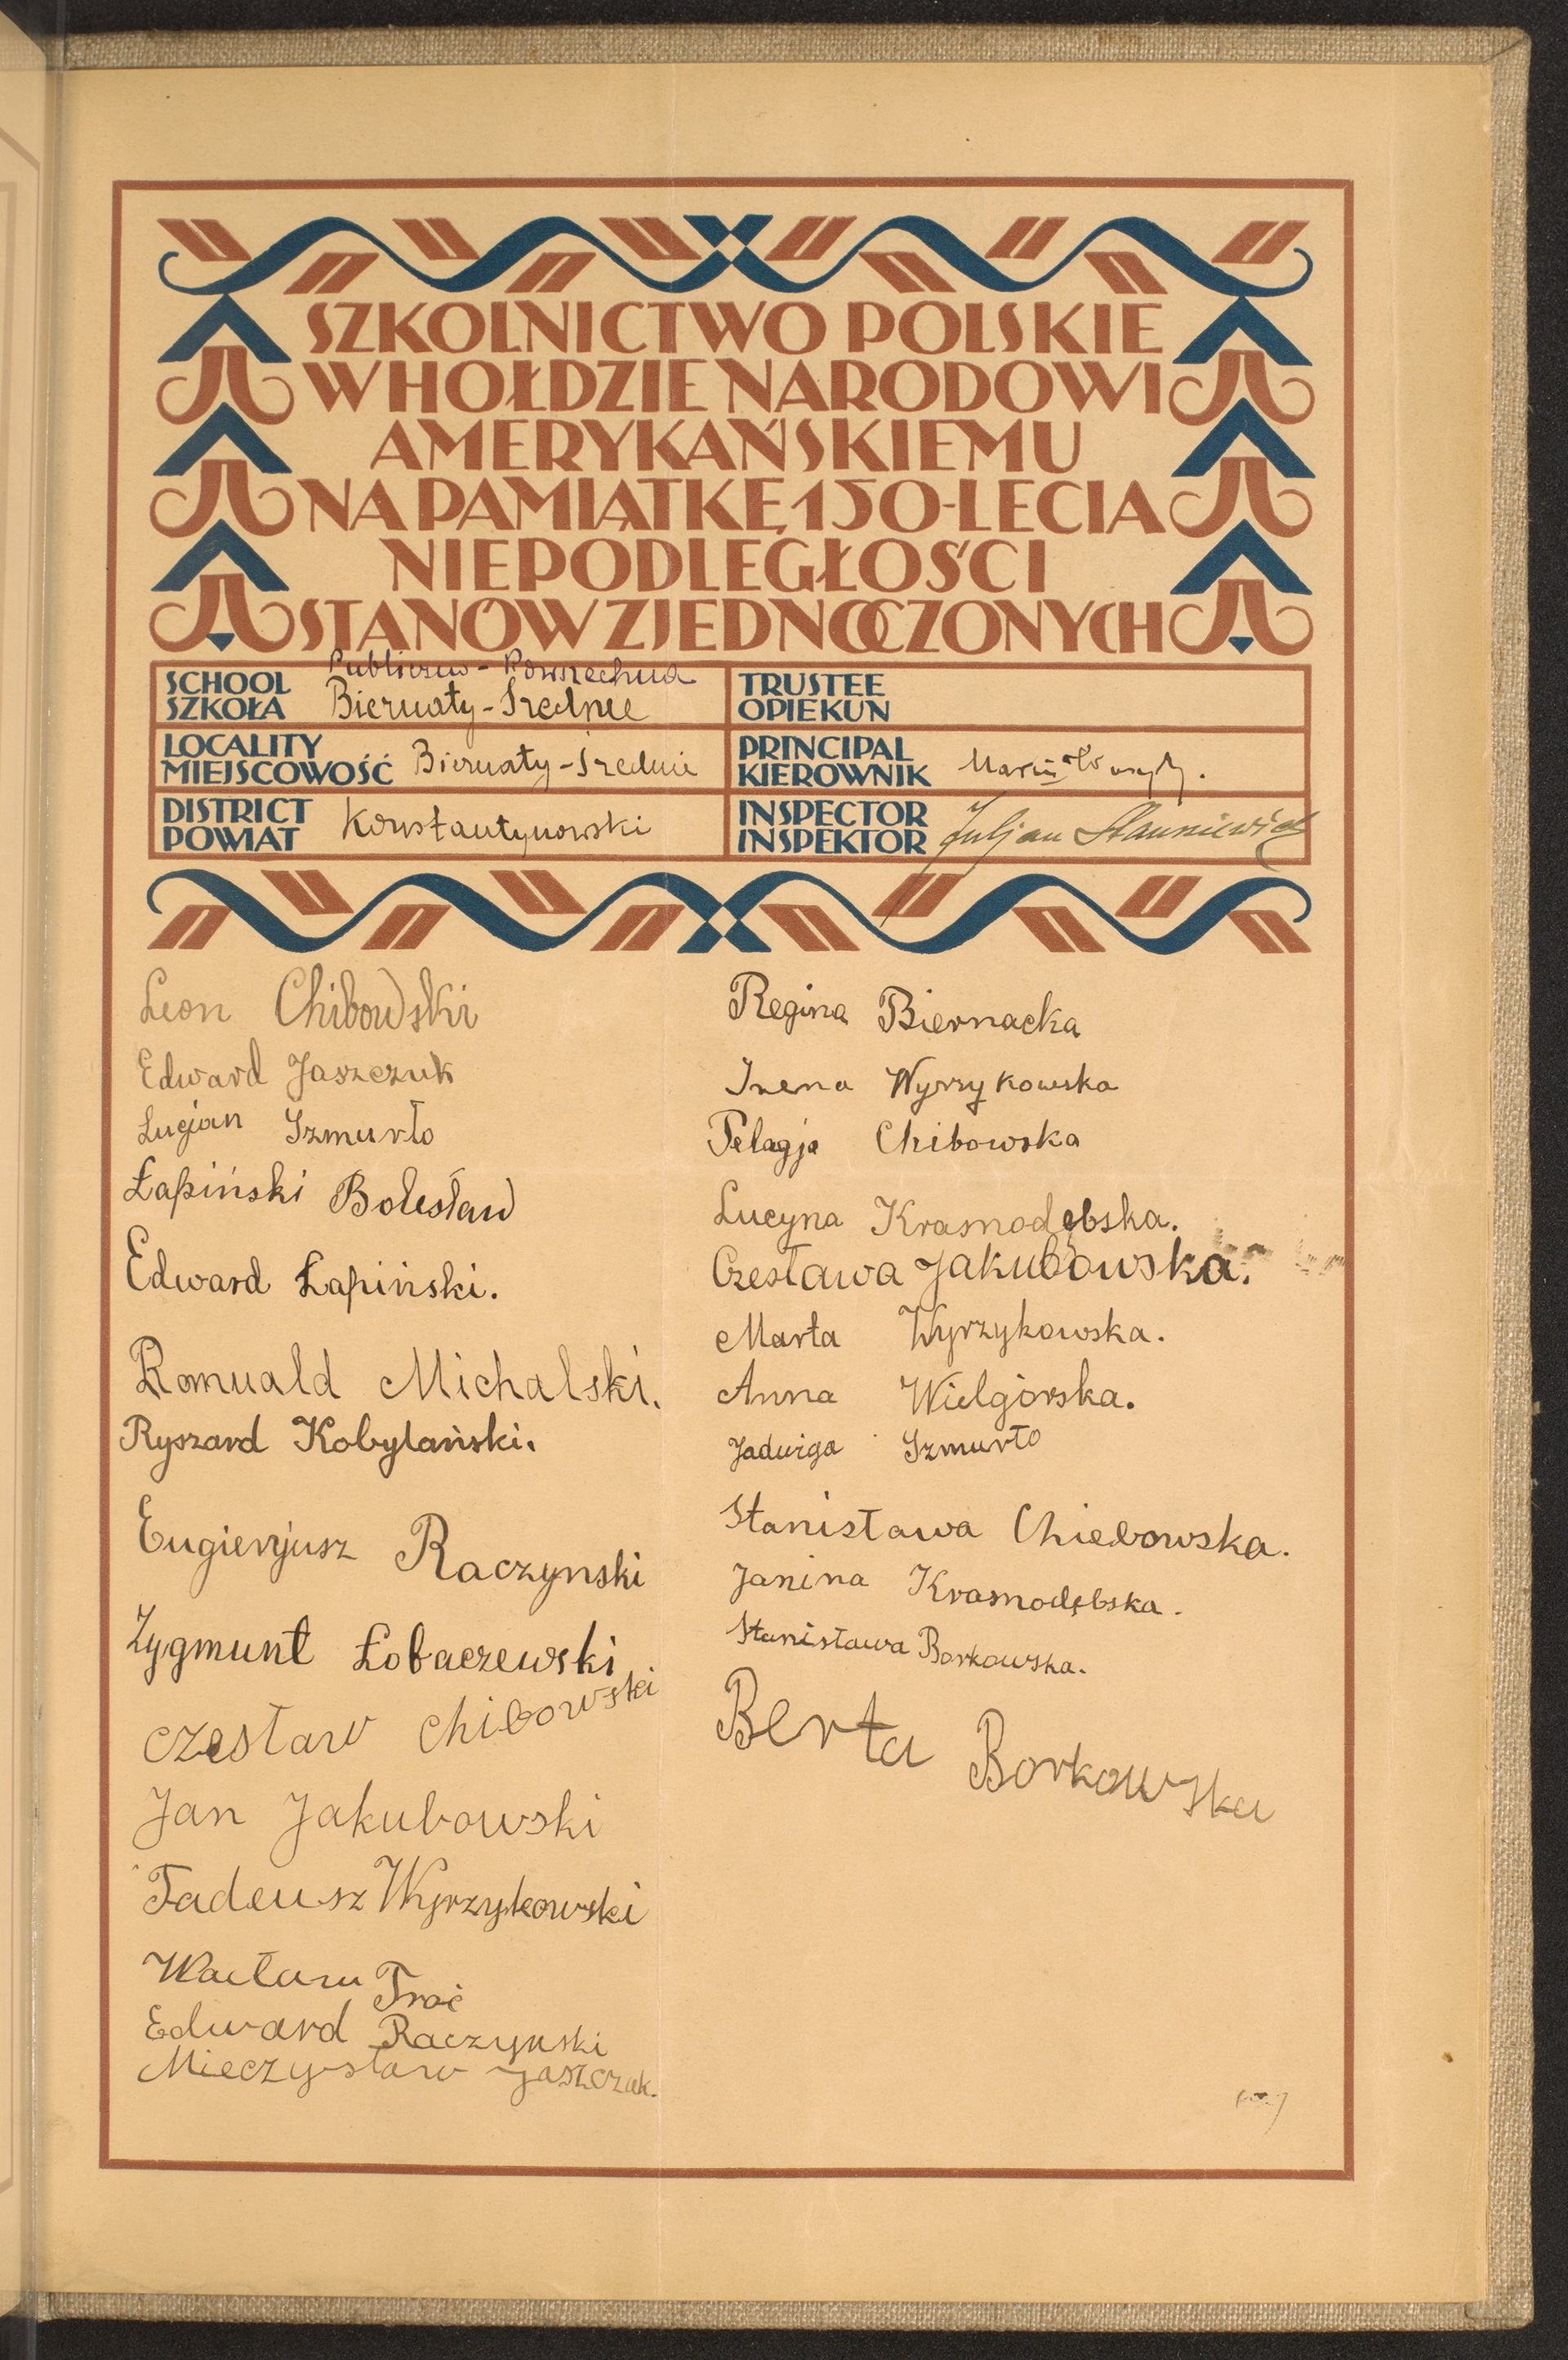 SZKOLNICTWO POLSKIE
W HOŁDZIE NARODOWI
AMERYKAŃSKIEMU
NA PAMIĄTKĘ 150-LECIA
NIEPODLEGŁOŚCI
STANÓW ZJEDNOCZONYCH
SCHOOL
SZKOŁA
Powszechna
Biernaty-Średnie
TRUSTEE
OPIEKUN
LOCALITY
MIEJSCOWOŚĆ
Biernaty-Średnie
PRINCIPAL
KIEROWNIK
DISTRICT
POWIAT
Konstantynowski
INSPECTOR
INSPEKTOR
Juljan
Leon Chibowski
Edward Jaszczuk
Lucjan Szmurło
Łapiński Bolesław
Edward Łapiński.
Romuald Michalski.
Ryszard Kobylański.
Eugienjusz Raczynski
Zygmunt Łobaczewski
Czesław Chibowski
Jan Jakubowski
Tadeusz Wyrzykowski
Wacław Troć
Edward Raczynski
Mieczysław Jaszczuk.
Regina Biernacka
Irena Wyrzykowska
Pelagja Chibowska
Lucyna Krasnodębska.
Czesława Jakubowska.
Marta Wyrzykowska.
Anna Wielgórska.
Jadwiga Szmurło
Stanisława Chiebowska.
Janina Krasnodębska.
Stanisława Borkowska.
Berta Borkowska